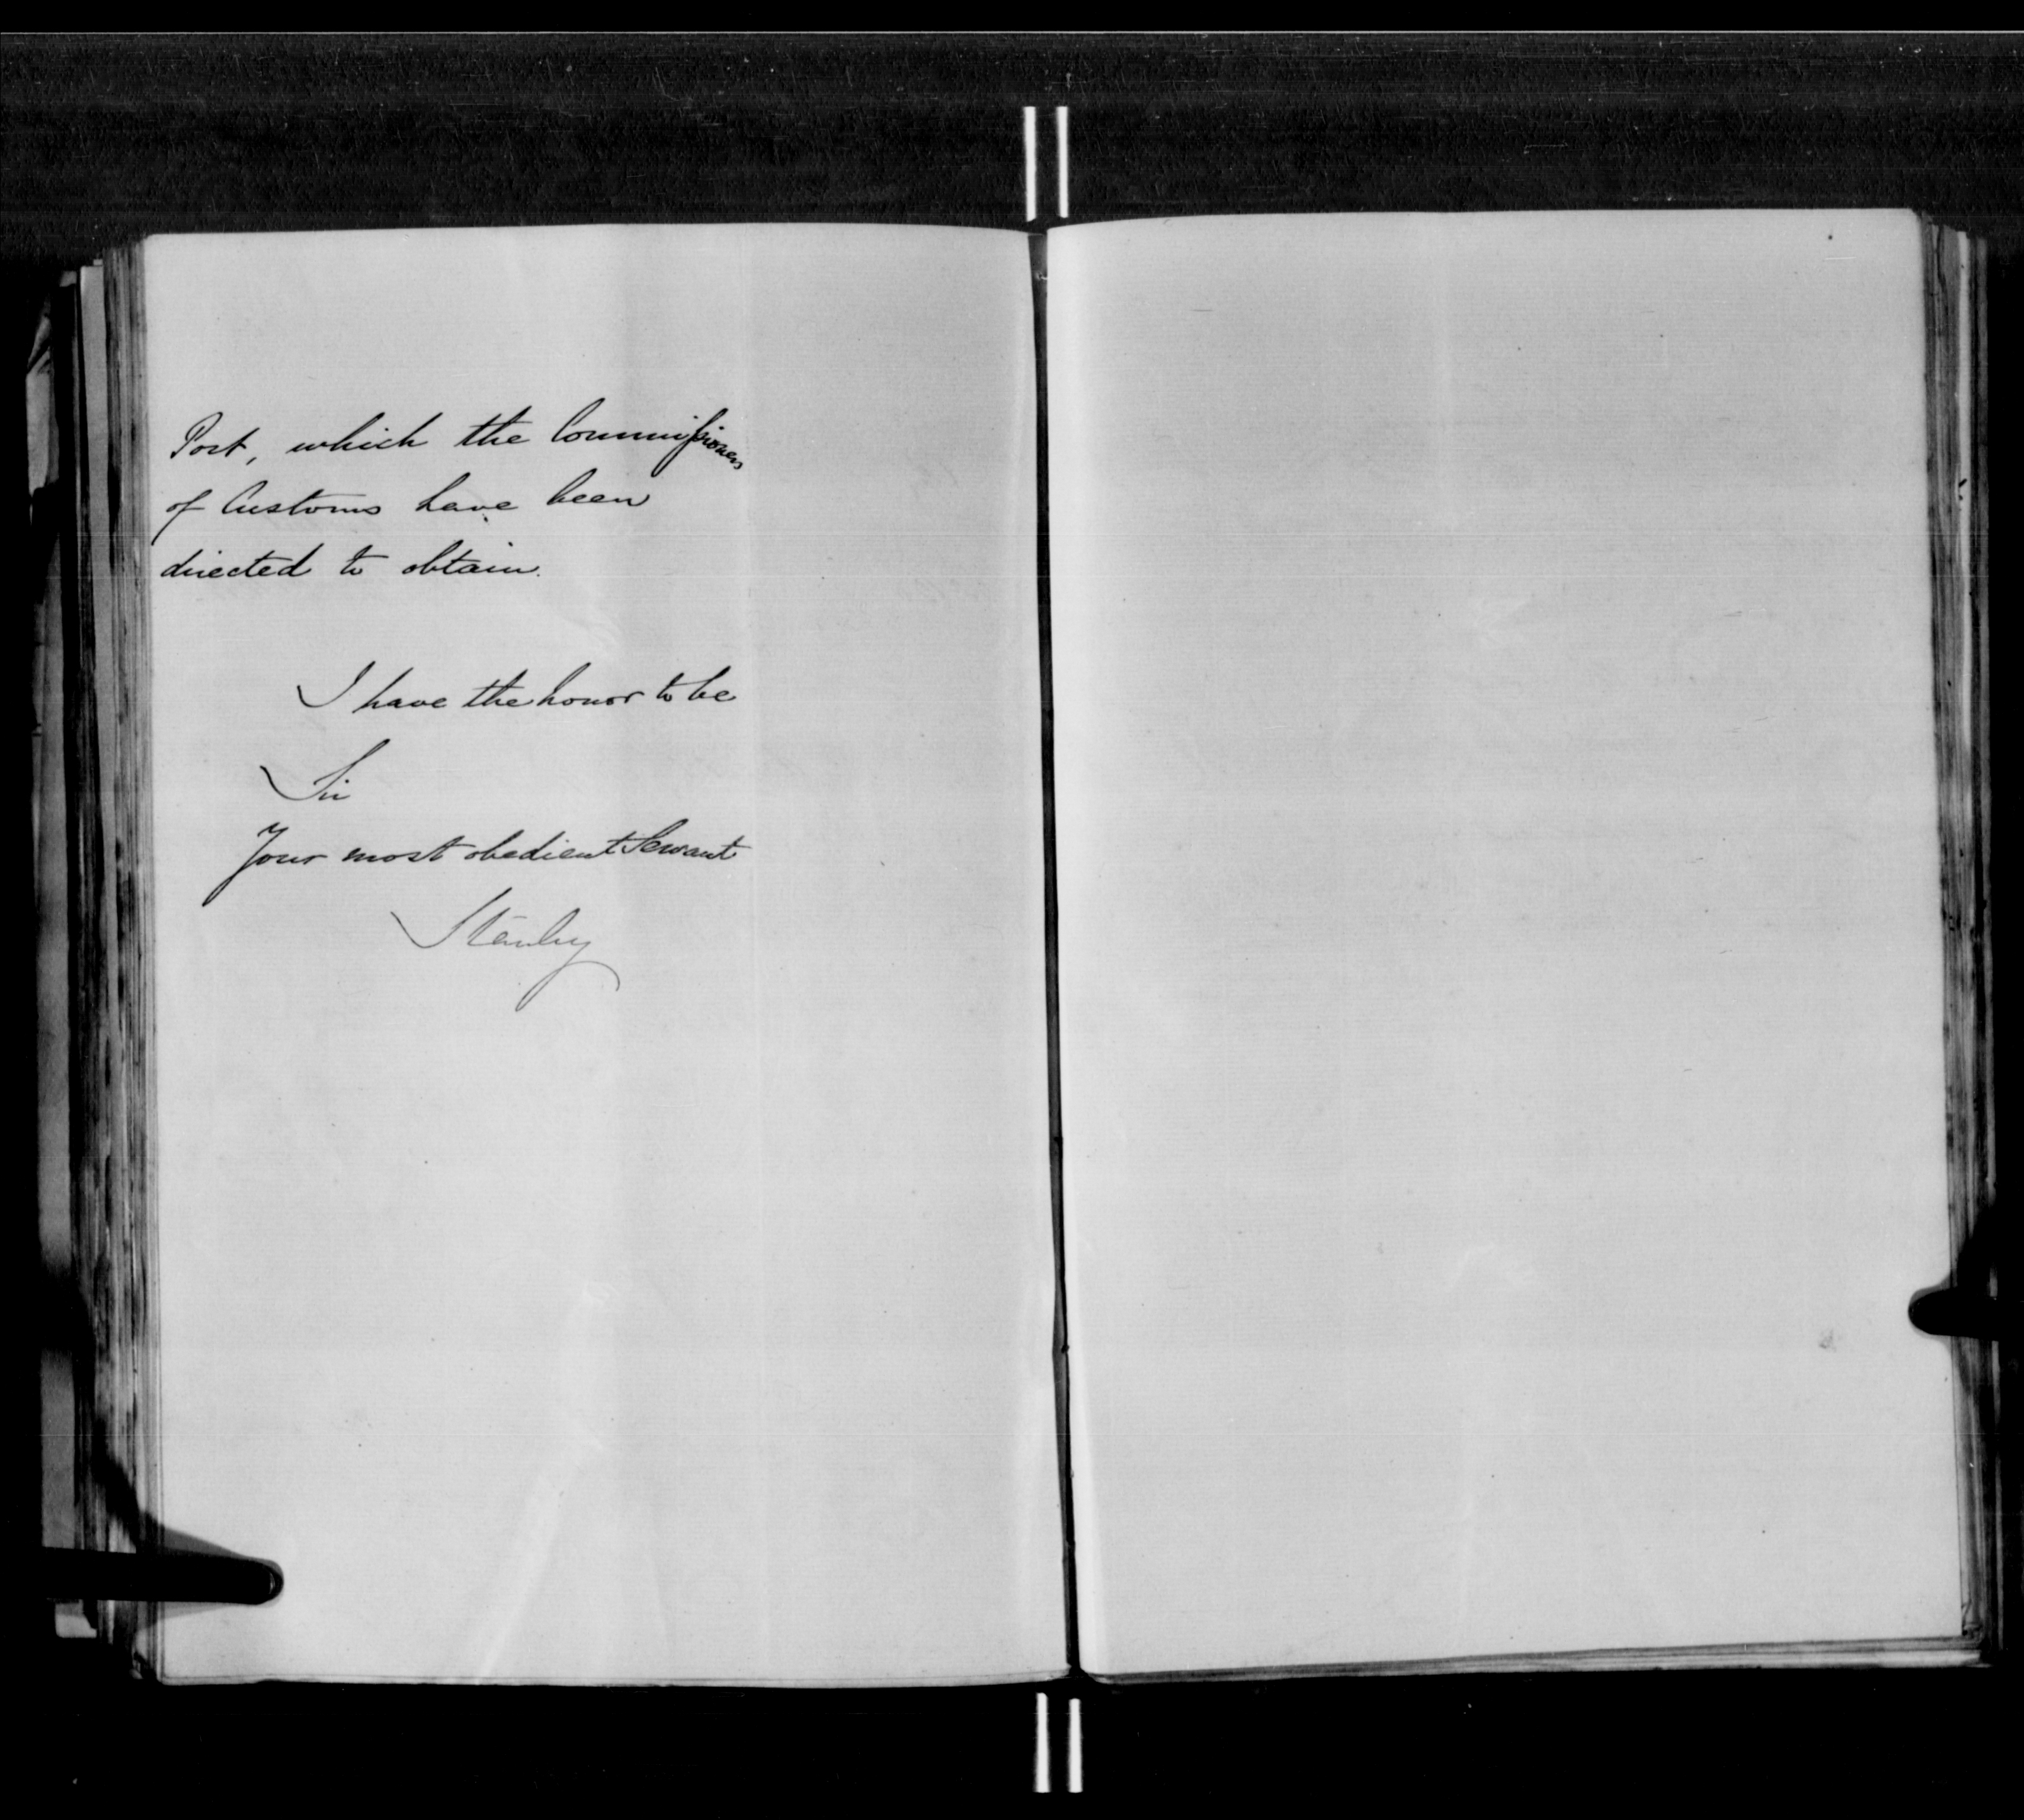 Port, which the Commissioners
of Customs have been
directed to obtain.
I have the honor to be
Sir
Your most obedient Servant
Stanley